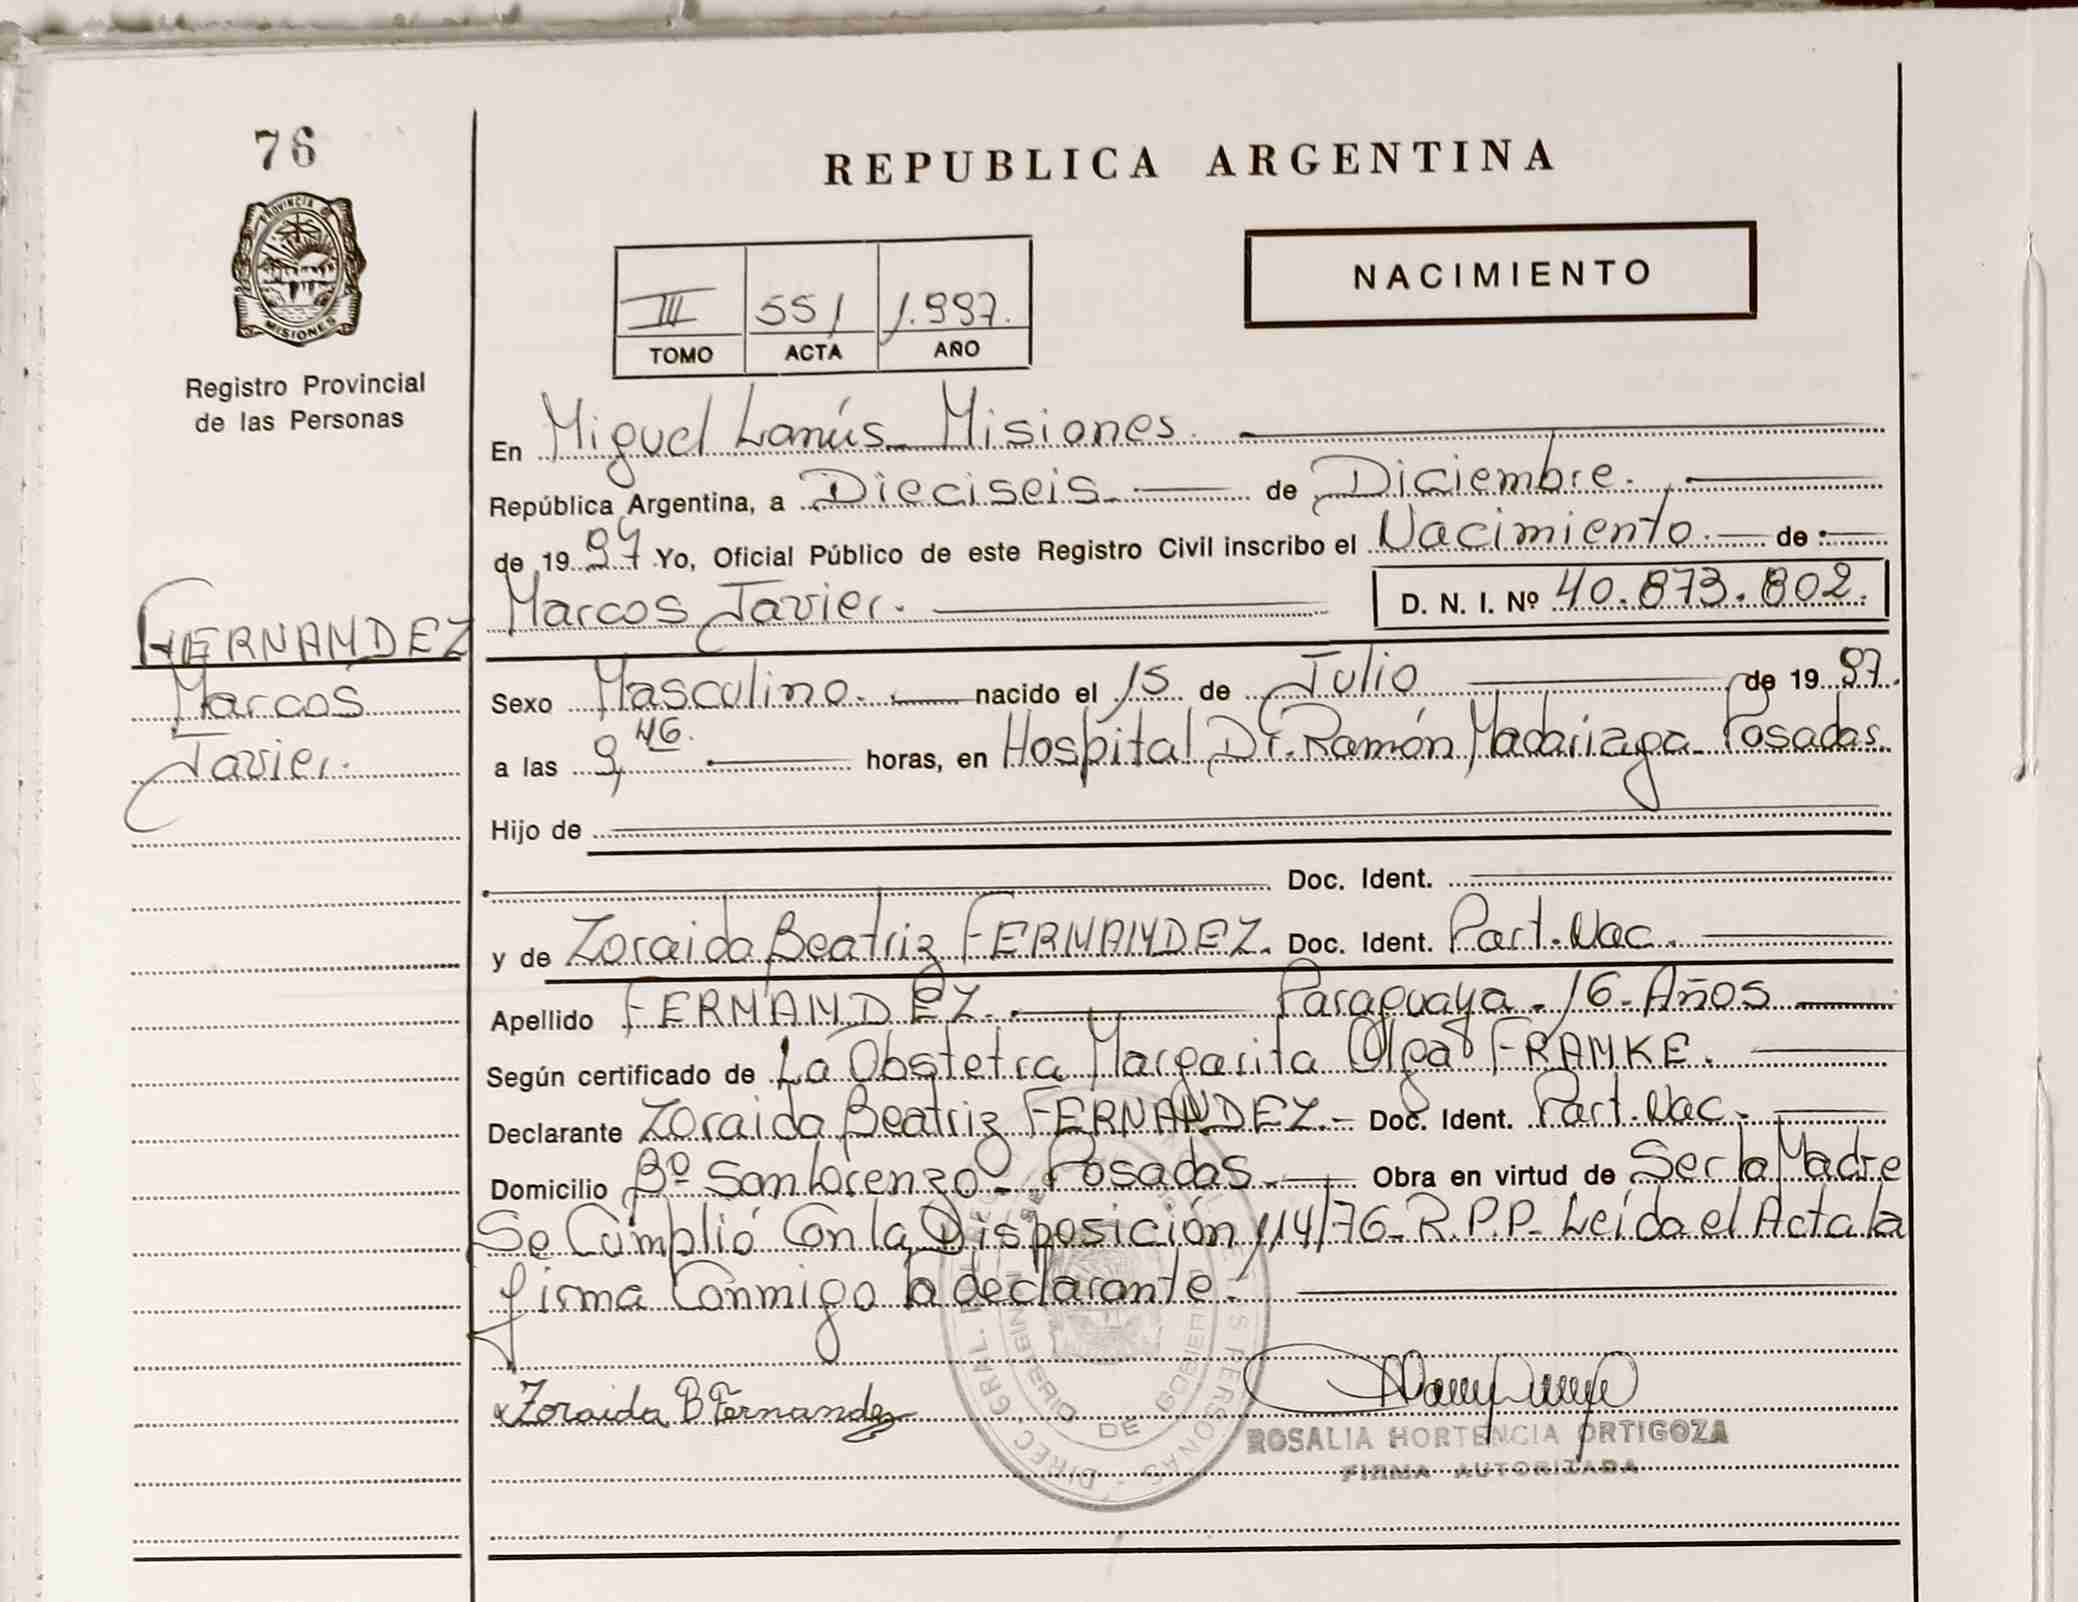 76
PROVINCIA D
MISIONES
Registro Provincial
de las Personas
REPUBLICA ARGENTINA
NACIMIENTO
III 551 1.997.
TOMO ACTA AÑO
En Miguel Lanús - Misiones.
República Argentina, a Dieciseis - de Diciembre.
de 19 97 Yo, Oficial Público de este Registro Civil inscribo el Nacimiento. de
Marcos Javier. D. N. I. Nº 40.873.802.
FERNANDEZ
Marcos
Javier.
Sexo Masculino. nacido el 15 de Julio de 19 97.
a las 9,46. horas, en Hospital Dr. Ramón Madariaga - Posadas.
Hijo de
Doc. Ident.
y de Zoraida Beatriz FERNANDEZ. Doc. Ident. Part. Nac.
Apellido FERNANDEZ. Paraguaya - 16 - Años
Según certificado de La Obstetra Margarita Olga FRANKE.
Declarante Zoraida Beatriz FERNANDEZ.- Doc. Ident. Part. Nac.
Domicilio Bº San Lorenzo - Posadas. Obra en virtud de Ser la Madre
Se Cumplió Con la Disposición 114/76 - R.P.P- Leída el Acta la
firma Conmigo la declarante.
x Zoraida B Fernandez
ROSALIA HORTENCIA ORTIGOZA
FIRMA AUTORIZADA
DIREC GRAL.
S PERSONAS
MINISTERIO DE GOBIER